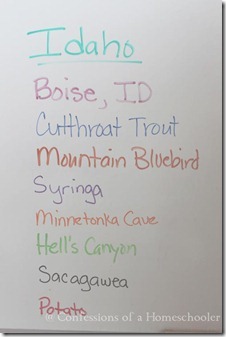 Idaho
Boise, ID
Cutthroat Trout
Mountain Bluebird
Syringa
Minnetonka Cave
Hell's Canyon
Sacagawea
© Confessions of a Homeschooler
Potato